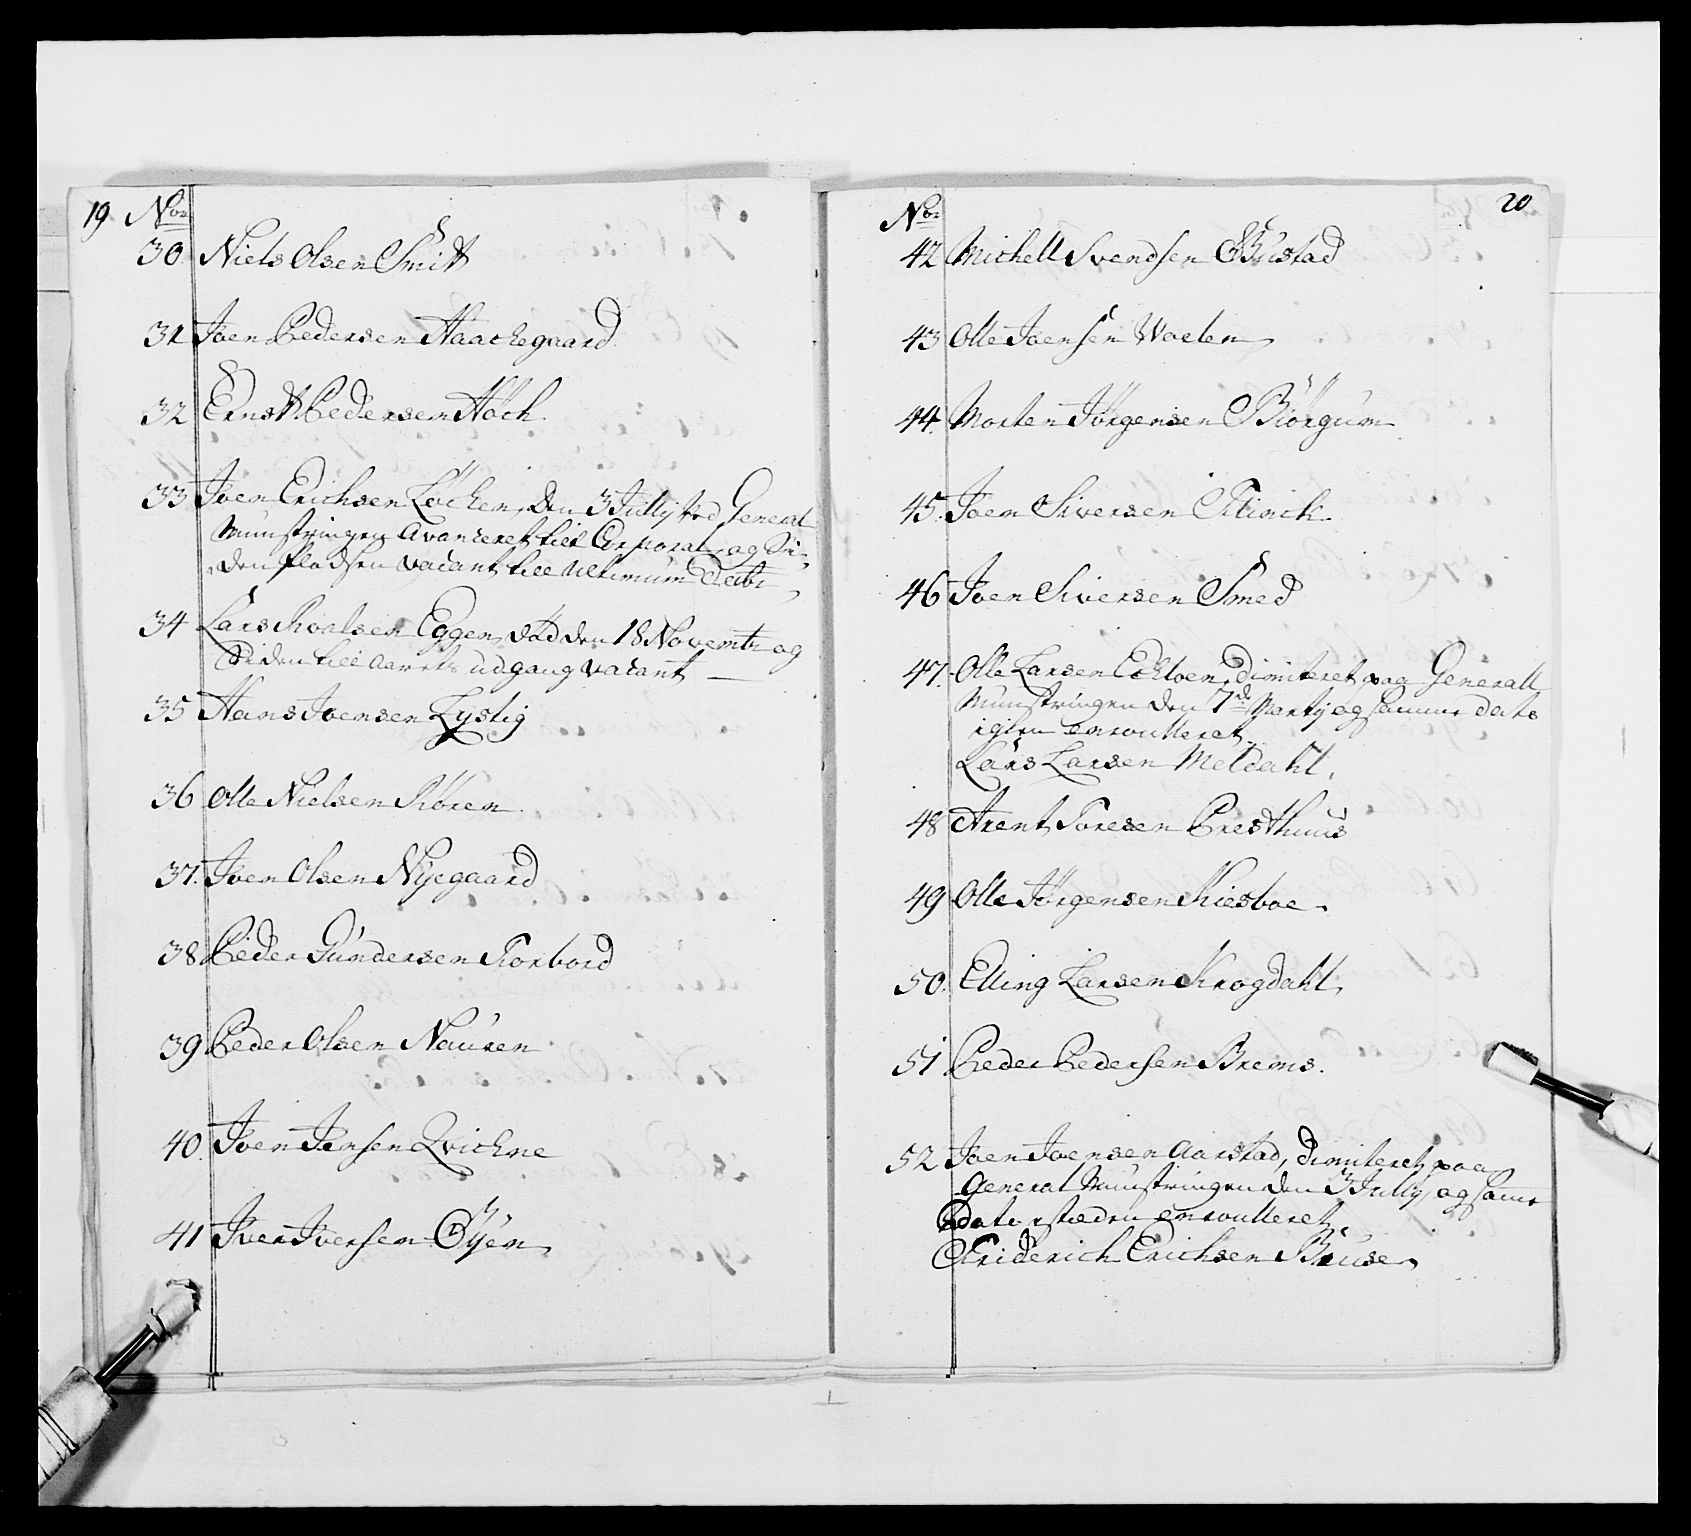 19 No
30 Niels Olsen Smitt
31 Joen Pedersen Haackegaard
32 Ernst Pedersen Höch
33 Joen Erichsen Löcken, den 3 Jullÿ ved General
Munstringen Avanceret till Corporal, og Si-
den pladsen vacant till ultimum Decbr
34 Lars Roalsen Eggen, död den 18 Novembr og
Siden till aarets udgang vacant
35 Hans Joensen Lystig
36 Olle Nielsen Rören
37. Joen Olsen Nÿegaard
38 Peder Gundersen Forbord
39 Peder Olsen Nauren
40. Joen Jensen Qvickne
41 Iver Iversen Öÿen
20
No
42 Michell Svendsen Bustad
43 Olle Joensen Woelen
44. Morten Jörgensen Biörgum
45. Joen Siversen Flinck
46 Joen Siversen Smed
47. Olle Larsen Echloen, dimiteret paa Generall
Munstringen den 7de Martÿ og samme dato
igien enroulleret
Lars Larsen Meldahl.
48 Arent Toresen Presthuus
49 Olle Jörgensen Kiesboe
50. Elling Larsen Krogdahl
51 Peder Pedersen Brems.
52 Joen Joensen Aarstad, dimiteret paa
General Munstringen den 3 Jullÿ, og samme
dato i stæden enroulleret
Friderich Erichsen Bruse